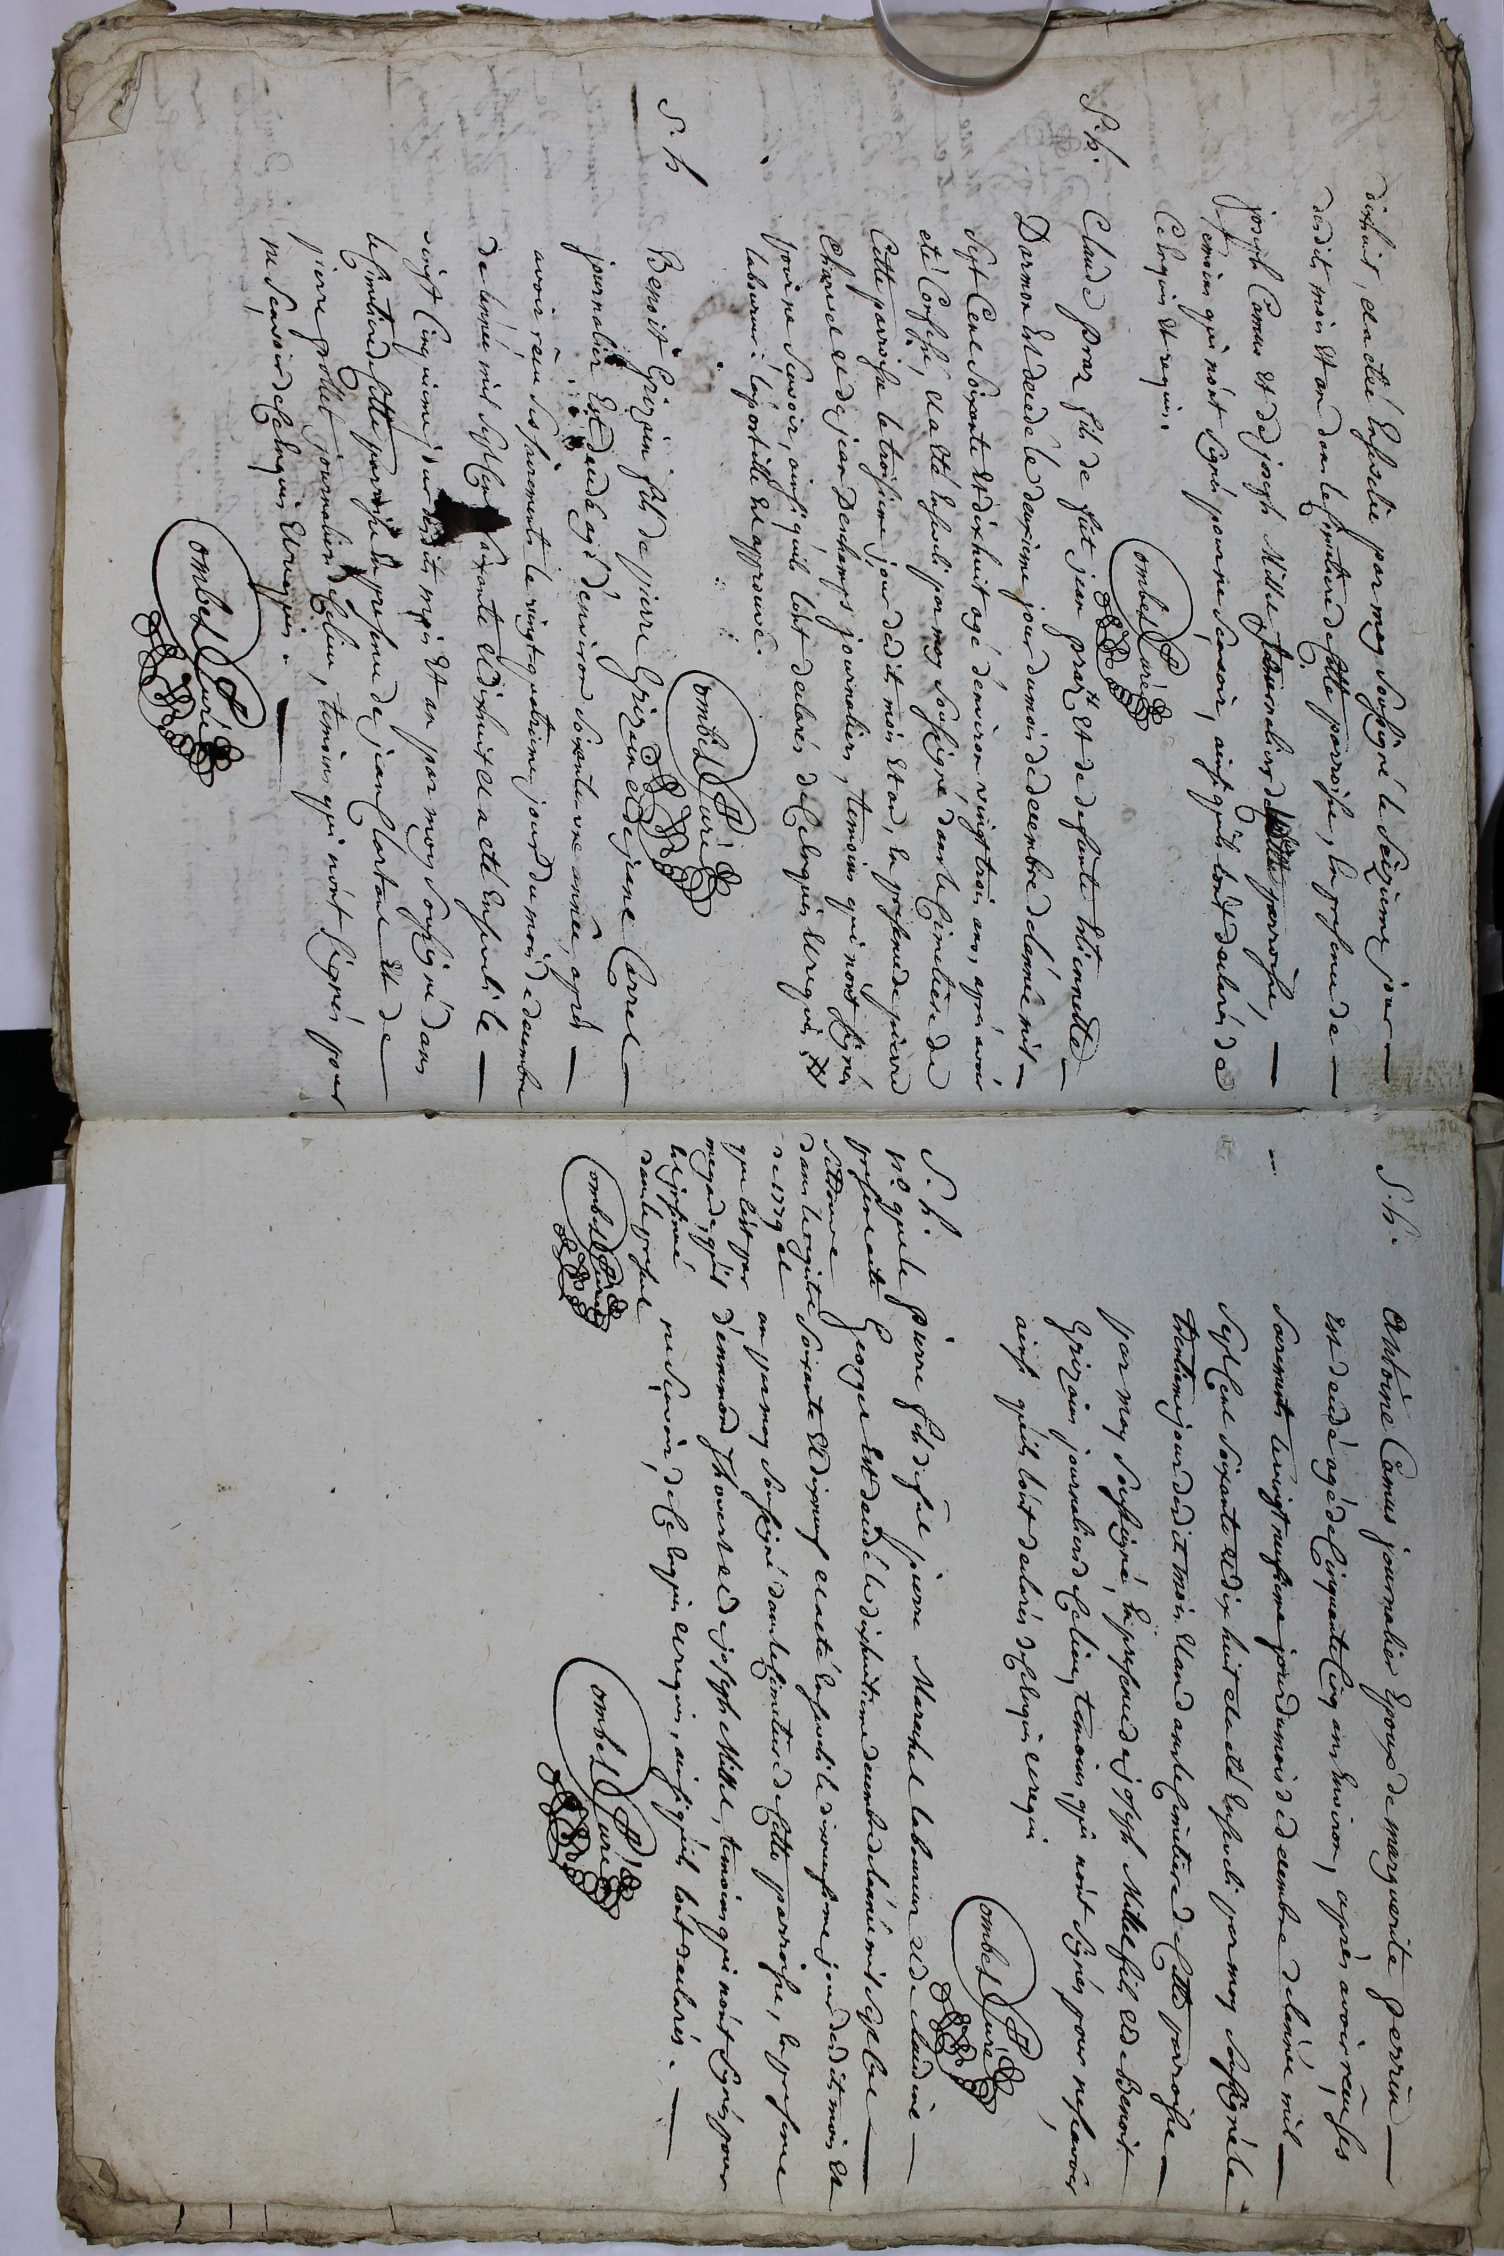 dixhuit, et a été Enseveli par moy soussigné le Seizieme jour
desdits mois et an dans le Cimetiere de Cette parroisse, En presence de
joseph Camus et de joseph Millet journaliers de cette parroisse,
temoins qui n'ont Signés pour ne Scavoir, ainsi qu'ils l'ont declarés de
Ce Enquis et requis.
Combet Curé
S. h.
Claude fils de fût jean et de deffunte Etiennette
Darmon Est decedé le deuxieme jour du mois de decembre de l'année mil
Sept Cent Soixante et dixhuit agé d'environ vingt trois ans, après avoir
eté Confessé, et a été Enseveli par moy Soussigné dans le Cimetiere de
Cette parroisse le troisieme jour dedit mois et an, En presence de pierre
Charvet et de jean Deschamps journaliers, temoins qui n'ont Signés
pour ne Scavoir, ainsi qu'ils l'ont declarés de Ce Enquis et requis
laboureur: l'apostille Est approuvé.
Combet Curé
S. h
Benoit Grizein fils de pierre Grizein et de jeane Carrel
journalier Est decedé agé d'environ Soixante une année, après
avoir rêcu Ses Sacrements le vingt quatrieme jour du mois de decembre
de l'année mil Sept Cent Soixante et dixhuit et a eté Enseveli le
vingt Cinquieme jour desdits mois et an par moy Soussigné dans
le Cimetiere de Cette parroisse En presence de jean et de
pierre journaliers de Ce lieu, temoins qui n'ont Signés pour
ne Scavoir de Ce Enquis et requis.
Combet Curé
S. h.
Antoine Camus journalier Epoux de marguerite perrin
Est decedé agé de Cinquante Cinq ans Environ, après avoir rêcu Ses
Sacrements le vingt neufieme jour du mois de decembre de l'année mil
Sept Cent Soixante et dix huit et a eté Enseveli par moy Soussigné le
trentieme jour dedit mois et an dans le Cimetiere de Cette parroisse
par moy Soussigné, En presence de joseph Millet fils et de Benoit
Grizein journaliers de Ce lieu, temoins qui n'ont Signés pour ne Scavoir
ainsi qu'ils l'ont declarés de Ce Enquis et requis
Combet Curé
S. h.
no. que le
present acte
Se trouve
dans le registre
de 1779 et
que C'est par
megarde, qu'il
dans le present
Combet Curé
pierre fils de feu pierre Marechal laboureur et de Claudine
George Est decedé le dixhuitieme decembre de l'année mil Sept Cent
Soixante et dixneuf et a eté Enseveli le dixneufieme jour desdits mois et
an par moy Soussigné dans le Cimetiere de Cette parroisse, En presence
d'ennemond et de joseph Millet, temoins qui n'ont Signés pour
ne Scavoir, de Ce Enquis et requis, ainsi qu'ils l'ont declarés.
Combet Curé